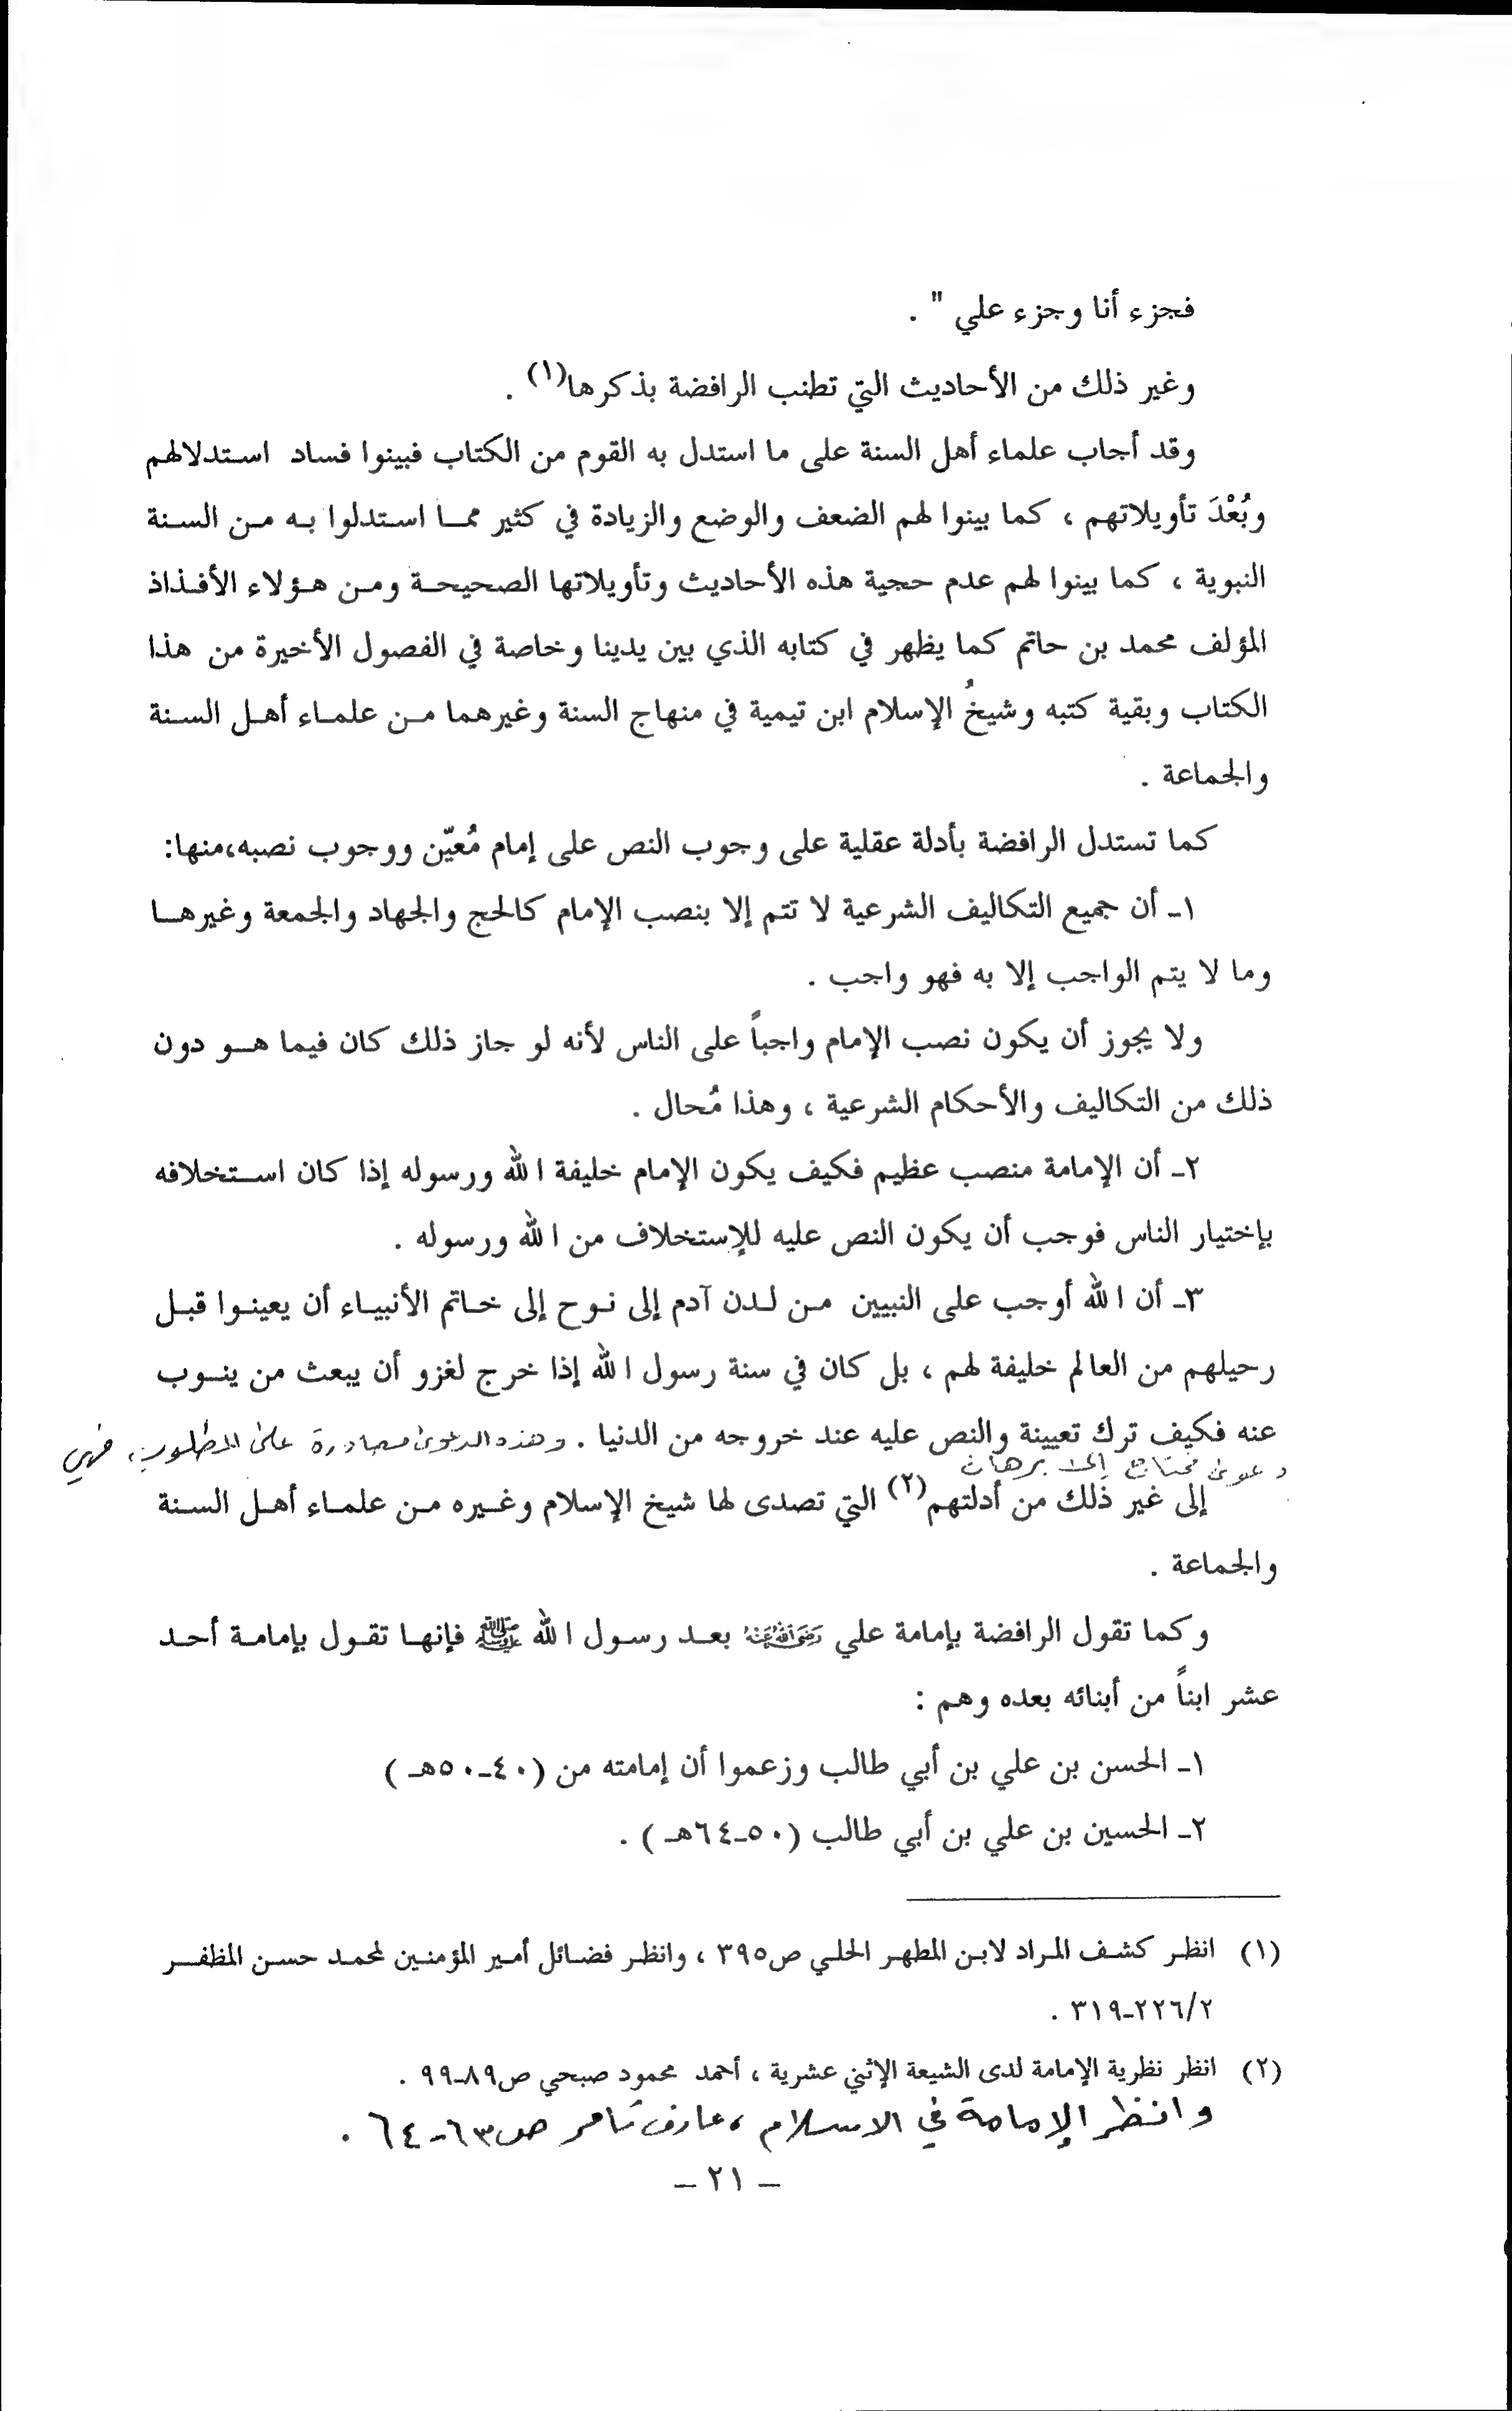 فجزء أنا وجزء علي " .
وغير ذلك من الأحاديث التي تطنب الرافضة بذكرها(١) .
وقد أجاب علماء أهل السنة على ما استدل به القوم من الكتاب فبينوا فساد استدلالهم
وبُعْدَ تأويلاتهم ، كما بينوا لهم الضعف والوضع والزيادة في كثير مما استدلوا به من السنة
النبوية ، كما بينوا لهم عدم حجية هذه الأحاديث وتأويلاتها الصحيحة ومن هؤلاء الأفذاذ
المؤلف محمد بن حاتم كما يظهر في كتابه الذي بين يدينا وخاصة في الفصول الأخيرة من هذا
الكتاب وبقية كتبه وشيخُ الإسلام ابن تيمية في منهاج السنة وغيرهما من علماء أهل السنة
والجماعة .
كما تستدل الرافضة بأدلة عقلية على وجوب النص على إمام مُعيّن ووجوب نصبه،منها:
١ـ أن جميع التكاليف الشرعية لا تتم إلا بنصب الإمام كالحج والجهاد والجمعة وغيرها
وما لا يتم الواجب إلا به فهو واجب .
ولا يجوز أن يكون نصب الإمام واجباً على الناس لأنه لو جاز ذلك كان فيما هو دون
ذلك من التكاليف والأحكام الشرعية ، وهذا مُحال .
٢ـ أن الإمامة منصب عظيم فكيف يكون الإمام خليفة الله ورسوله إذا كان استخلافه
بإختيار الناس فوجب أن يكون النص عليه للإستخلاف من الله ورسوله .
٣ـ أن الله أوجب على النبيين من لدن آدم إلى نوح إلى خاتم الأنبياء أن يعينوا قبل
رحيلهم من العالم خليفة لهم ، بل كان في سنة رسول الله إذا خرج لغزو أن يبعث من ينوب
عنه فكيف ترك تعيينة والنص عليه عند خروجه من الدنيا . وهذه الدعوى مصادرة على المطلوب، فهي
دعوى تحتاج إلى برهان
إلى غير ذلك من أدلتهم(٢) التي تصدى لها شيخ الإسلام وغيره من علماء أهل السنة
والجماعة .
وكما تقول الرافضة بإمامة علي رضي الله عنه بعد رسول الله ﷺ فإنها تقول بإمامة أحد
عشر ابناً من أبنائه بعده وهم :
١ـ الحسن بن علي بن أبي طالب وزعموا أن إمامته من (٤٠ـ٥٠هـ )
٢ـ الحسين بن علي بن أبي طالب (٥٠ـ٦٤هـ ) .
(١) انظر كشف المراد لابن المطهر الحلي ص٣٩٥ ، وانظر فضائل أمير المؤمنين لمحمد حسن المظفر
٢/‏٢٢٦ـ٣١٩ .
(٢) انظر نظرية الإمامة لدى الشيعة الإثني عشرية ، أحمد محمود صبحي ص٨٩ـ٩٩ .
وانظر الإمامة في الاسلام ، عارف تامر ص٦٣ـ٦٤ .
– ٢١ –